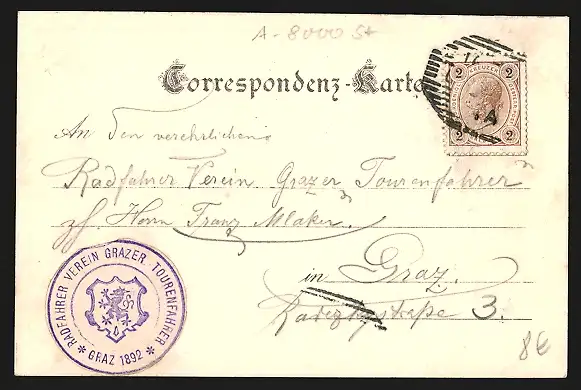 A-8000 St
Correspondenz-Karte
2 KREUZER 2
2 2
A
An den verehrlichen
Radfahrer Verein Grazer Tourenfahrer
zh. Herrn Franz Mlaker
in Graz.
Radetzkystraße 3.
RADFAHRER VEREIN GRAZER TOURENFAHRER
* GRAZ 1892 *
8€